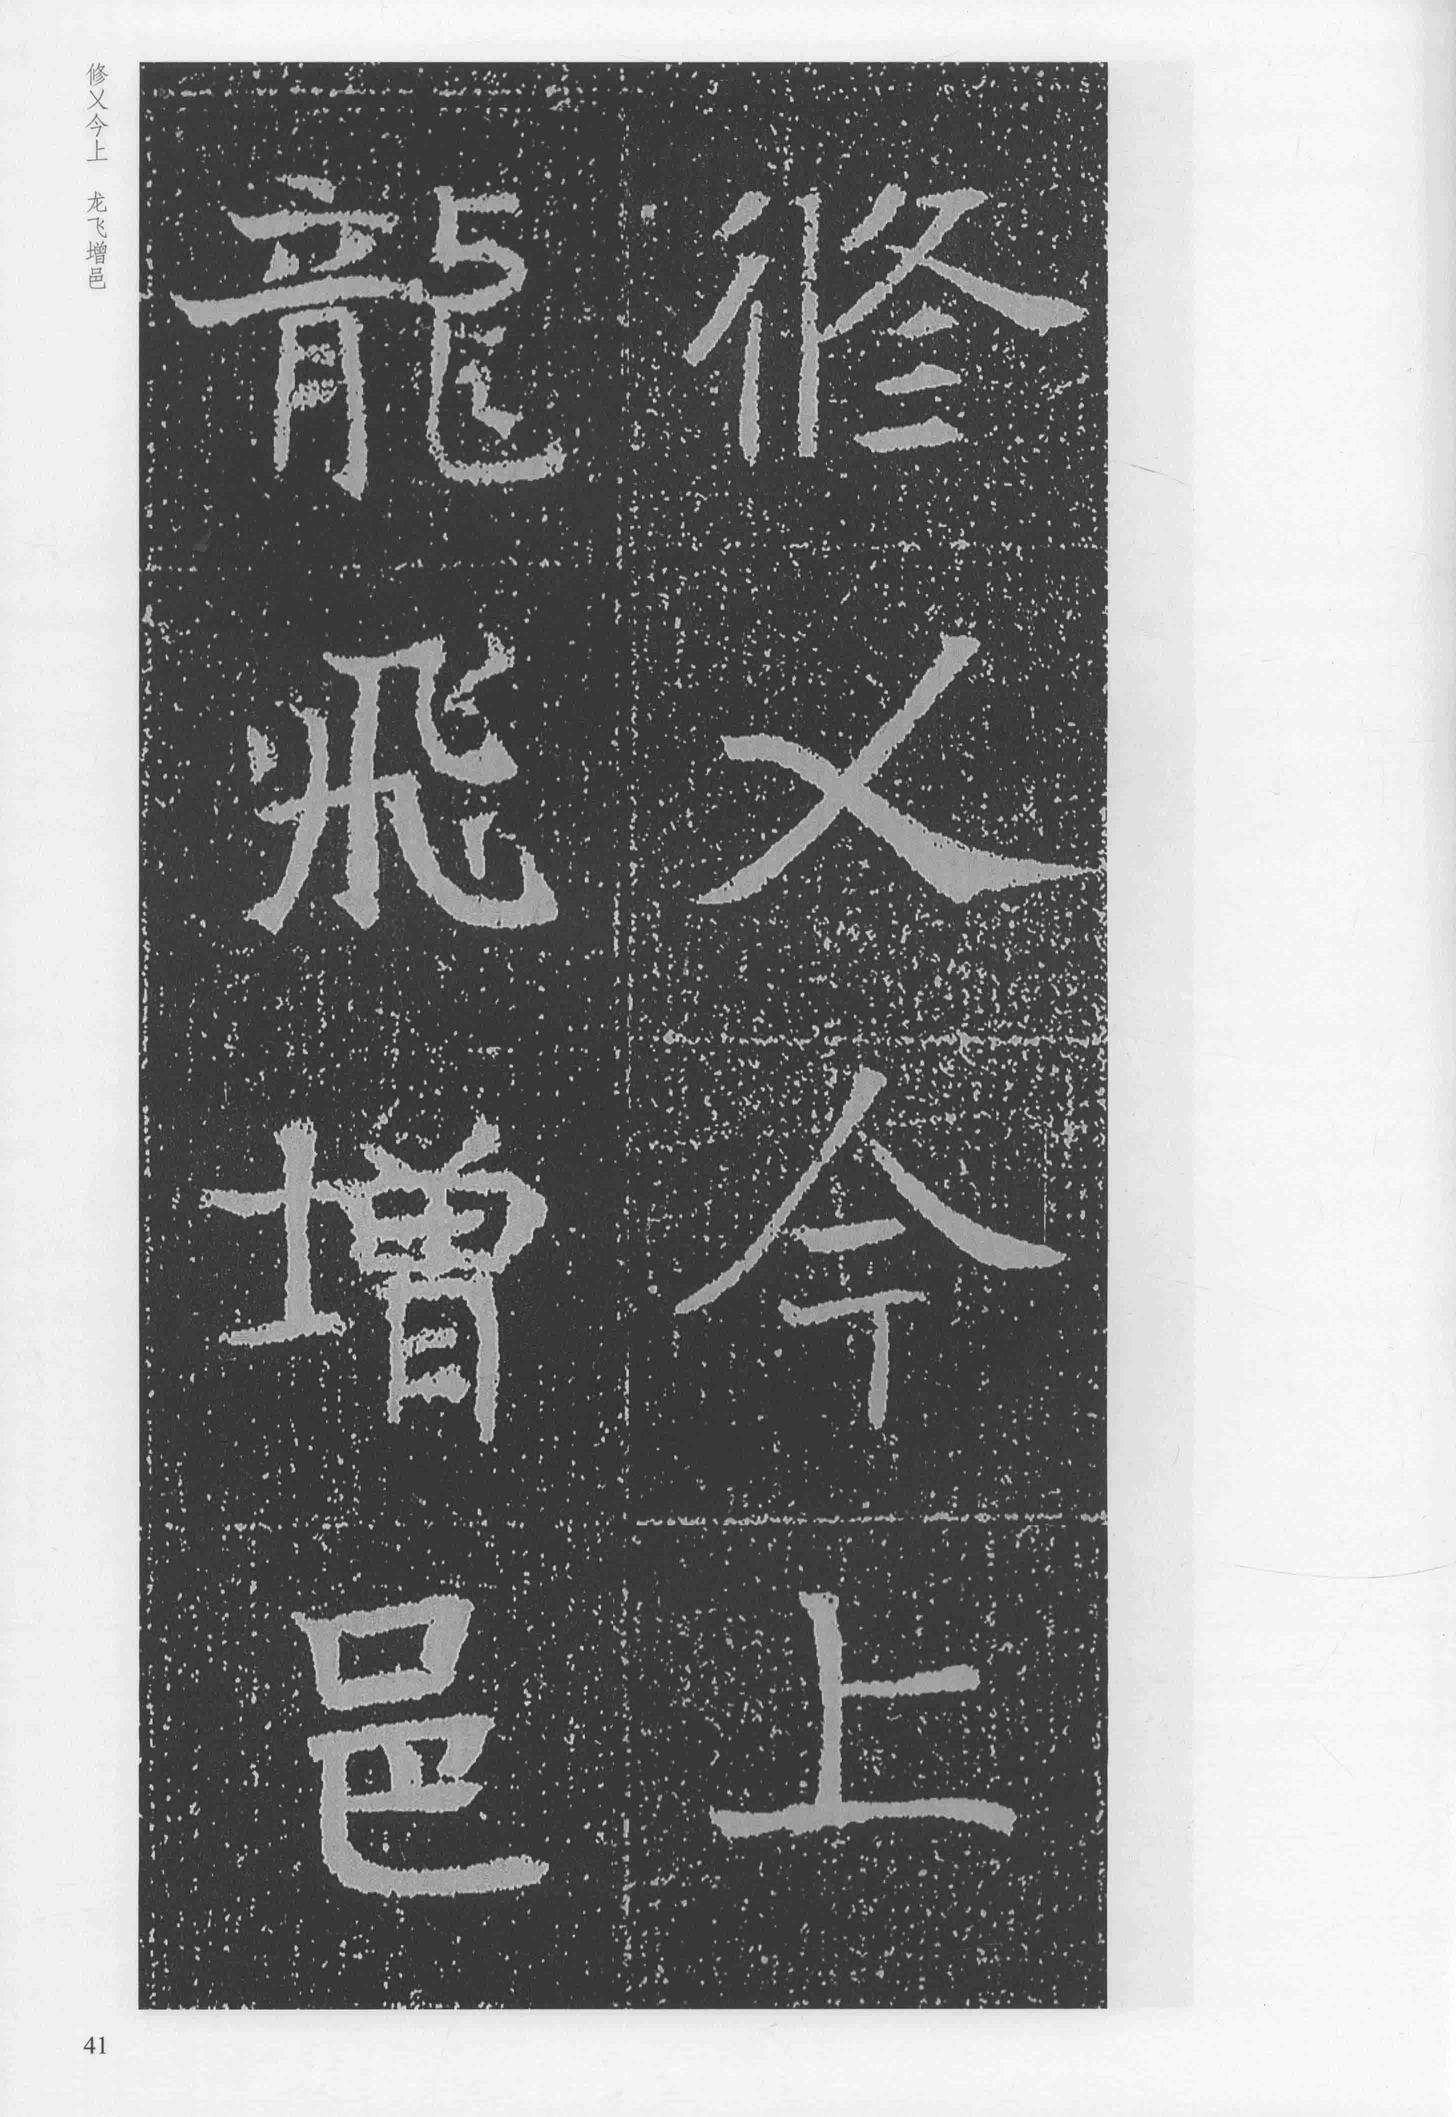 修乂今上
龍飛增邑
修乂今上 龙飞增邑
41